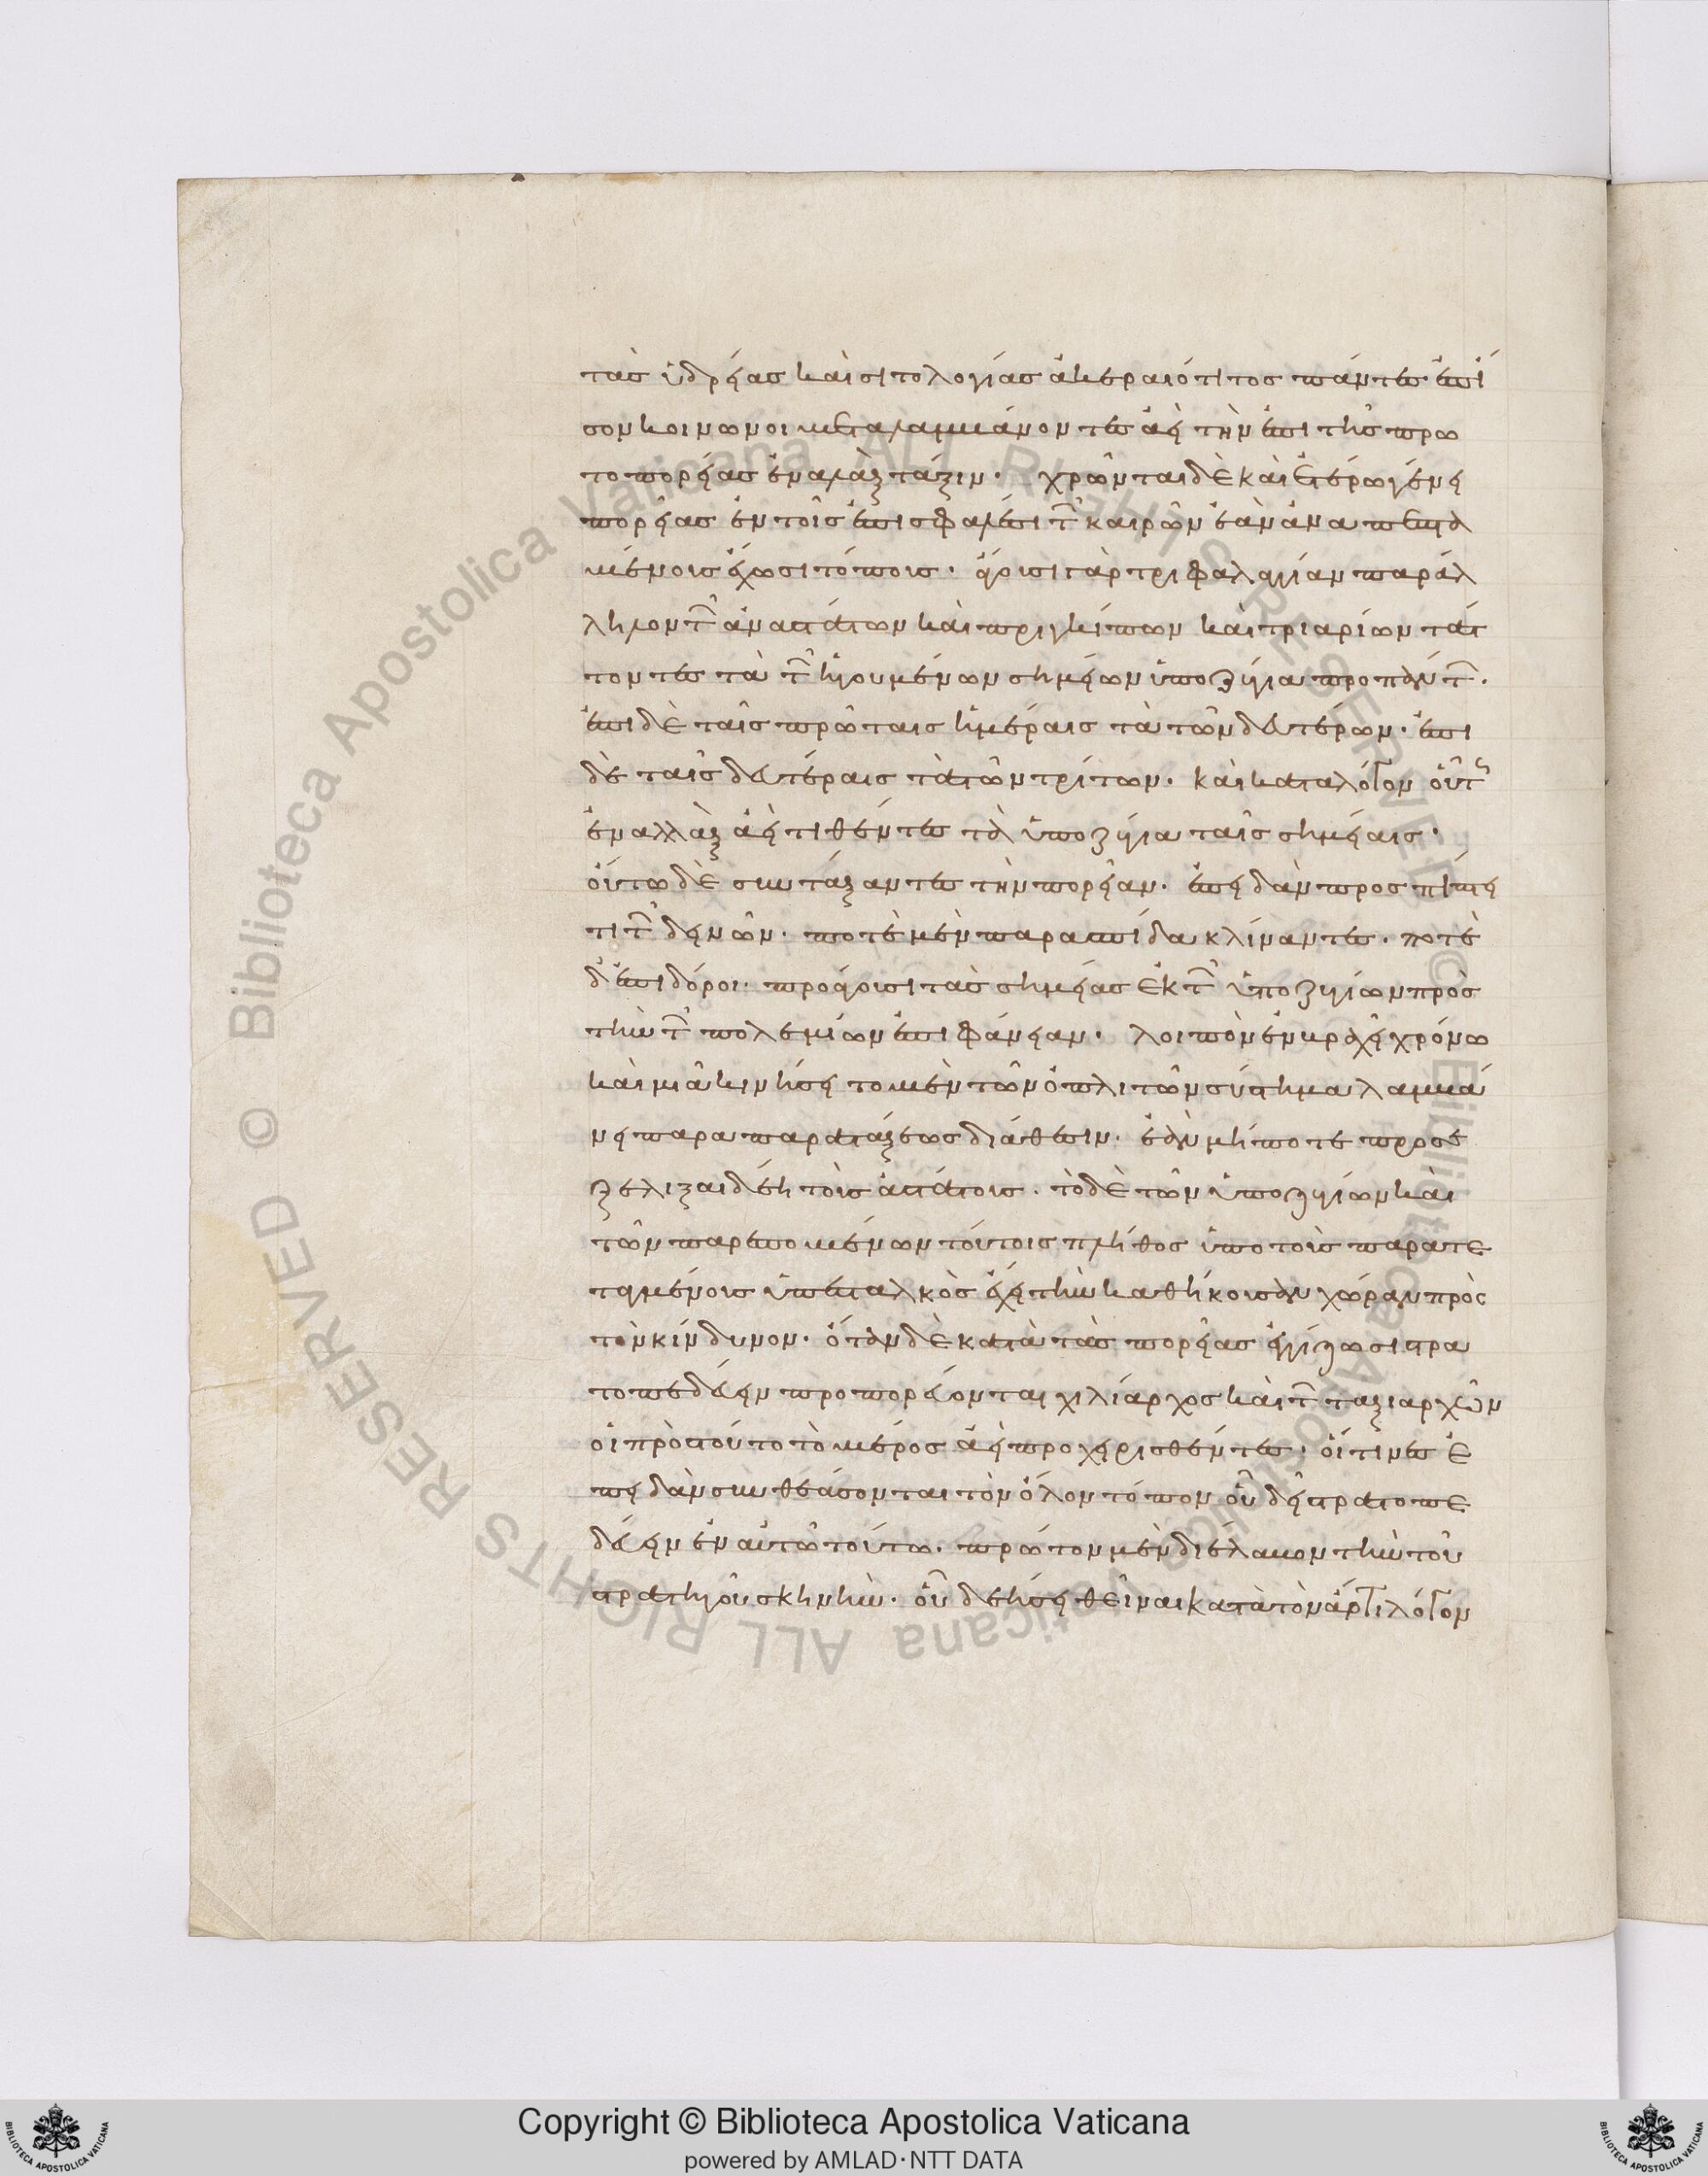 τὰς ὑδρείας καὶ σιτολογίας ἀκεραιότιτος πάντες ἐπί
σον κοινωνοι μεταλαμμάνοντες ἀεὶ τὴν ἐπι τῆς πρω
τοπορείας ἐναλὰξ τάξιν· χρῶνται δὲ καὶ ἑτέρω γένει
πορείας ἐν τοῖς ἐπισφαλέσι τῶν καιρῶν ἐὰν ἀναπεπτα
μένοις ἔχωσι τόποις· ἄγοισι γὰρ τριφαλαγγίαν παράλ
ληλον τῶν ἀναστάτων καὶ πριγκίπων καὶ τριαρίων τάτ
τοντες τὰ τῶν ἡγουμένων σημείων ὑποζύγια προ πάντων·
ἐπι δὲ ταῖς πρώταις ἡμέραις τὰ τῶν δευτέρων· ἐπι
δὲ ταῖς δευτέραις τὰ τῶν τρίτων· καὶ καταλόγον οὕτως
ἐναλλὰξ ἀεὶ τιθέντες τὰ ὑποζύγια ταῖς σημείαις·
οὕτω δὲ συντάξαντες τὴν πορείαν· ἐπειδὰν προσπίπτει
τι τῶν δεινῶν· ποτὲ μὲν παρασπίδα κλίναντες· ποτὲ
δ' ἐπι δόροι· προάγοισι τὰς σημείας ἐκ τῶν ὑποζυγίων πρὸς
τὴν τῶν πολεμίων ἐπιφάνειαν· λοιπὸν ἐν βραχεῖ χρόνω
καὶ μιᾶ κινήσει το μὲν τῶν ὁπλιτῶν σύστημα λαμμά
νει παρα παρατάξεως διάθεσιν· ἐὰν μήποτε προσε
ξελίξαι δέη τοῖς ἀστάτοις· τὸ δὲ τῶν ὑποζυγίων καὶ
τῶν παρεπομένων τούτοις πλήθος ὑπο τοὶς παρατε
ταγμένοις ὑπεσταλκὸς ἔχει τὴν καθήκοισαν χώραν πρὸς
τὸν κίνδυνον· ὅταν δὲ κατὰ τὰς πορείας ἐγγίζωσι στρα
τοπεδεύειν προπορεύονται χιλίαρχος καὶ τῶν ταξιαρχῶν
οἱ πρὸς τοῦτο τὸ μέρος ἀεὶ προχειρισθέντες· οἵτινες ἐ
πειδὰν συνθεάσονται τὸν ὅλον τόπον οὗ δεῖ στρατοπε
δεύειν ἐν αὐτῶ τούτω· πρώτον μὲν διέλαμον τὴν τοῦ
στρατηγοῦ σκηνὴν· οὗ δεήσει θεῖναι κατὰ τὸν ἄρτι λόγον
Copyright © Biblioteca Apostolica Vaticana
powered by AMLAD·NTT DATA